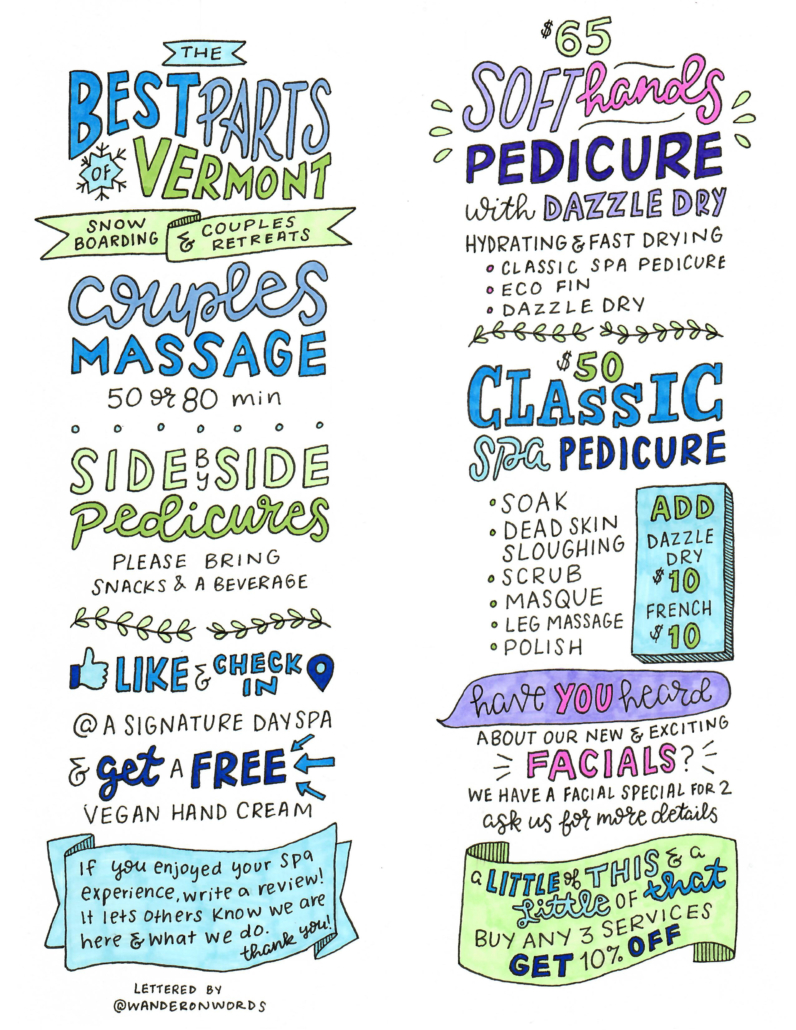 THE
BEST PARTS
OF VERMONT
SNOW BOARDING & COUPLES RETREATS
Couples
MASSAGE
50 or 80 min
SIDE BY SIDE
Pedicures
PLEASE BRING
SNACKS & A BEVERAGE
LIKE & CHECK IN
@ A SIGNATURE DAY SPA
& get A FREE
VEGAN HAND CREAM
If you enjoyed your spa
experience, write a review!
It lets others know we are
here & what we do.
thank you!
LETTERED BY
@WANDERONWORDS
$65
SOFT hands
PEDICURE
with DAZZLE DRY
HYDRATING & FAST DRYING
• CLASSIC SPA PEDICURE
• ECO FIN
• DAZZLE DRY
$50
CLASSIC
Spa PEDICURE
• SOAK
• DEAD SKIN
SLOUGHING
• SCRUB
• MASQUE
• LEG MASSAGE
• POLISH
ADD
DAZZLE
DRY
$10
FRENCH
$10
have YOU heard
ABOUT OUR NEW & EXCITING
FACIALS?
WE HAVE A FACIAL SPECIAL FOR 2
ask us for more details
a LITTLE of THIS & a
little OF that
BUY ANY 3 SERVICES
GET 10% OFF